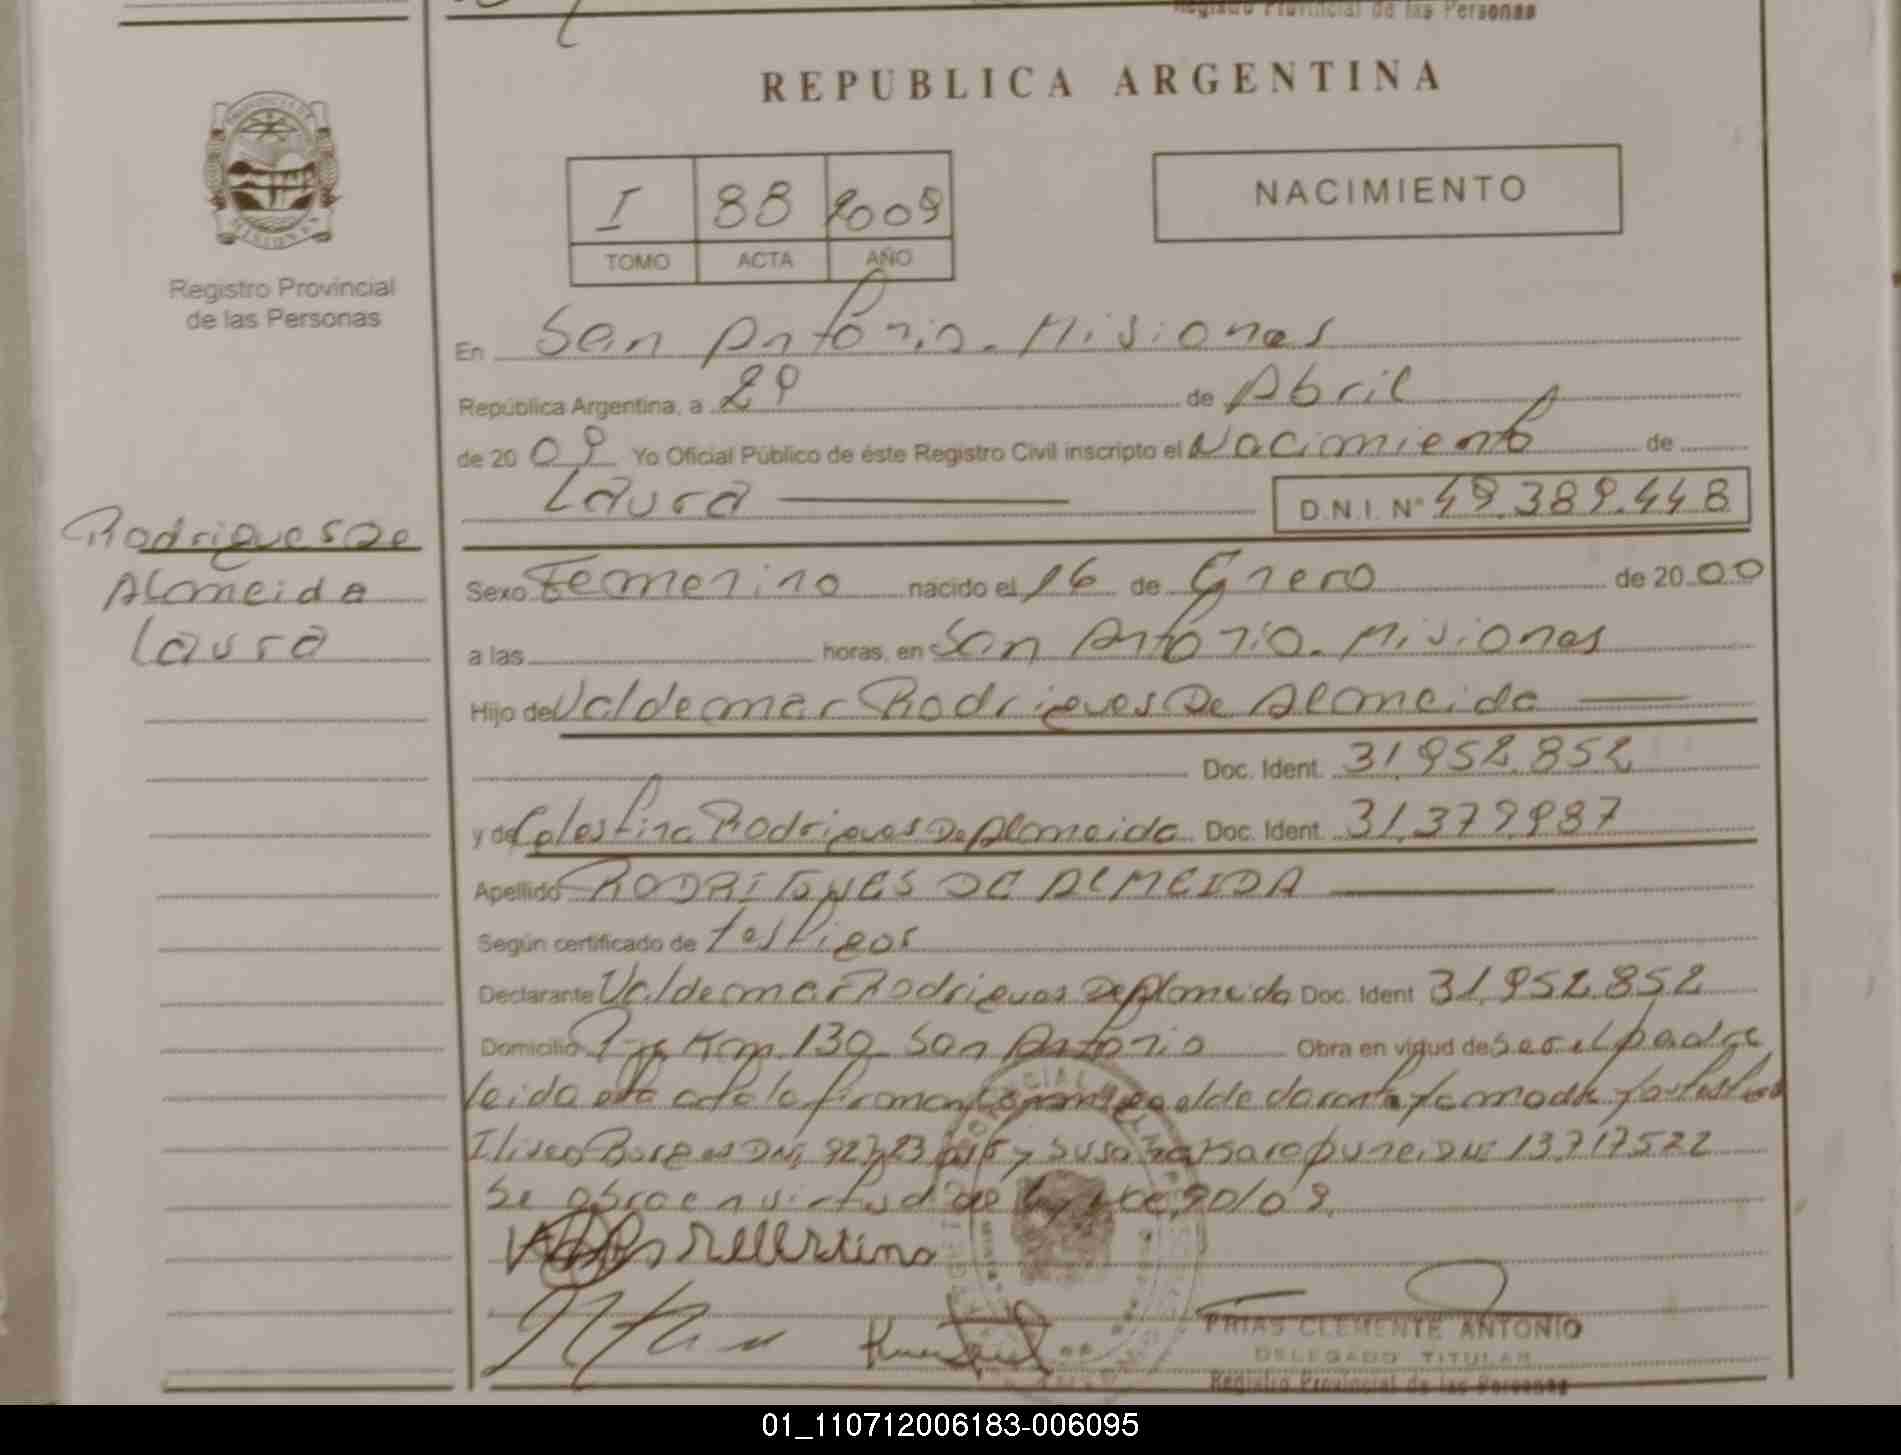 Registro Provincial de las Personas
REPUBLICA ARGENTINA
PROVINCIA DE
MISIONES
Registro Provincial
de las Personas
I 88 2009
TOMO ACTA AÑO
NACIMIENTO
En San Antonio. Misiones
República Argentina, a 29 de Abril
de 20 09 Yo Oficial Público de éste Registro Civil inscripto el Nacimiento de
Laura D.N.I. Nº 49.389.448
Rodrigues De
Almeida
Laura
Sexo Femenino nacido el 16 de Enero de 20 00
a las horas, en San Antonio. Misiones
Hijo de Valdemar Rodrigues De Almeida
Doc. Ident. 31.952.852
y de Celestina Rodrigues De Almeida Doc. Ident. 31.379.987
Apellido RODRIGUES DE ALMEIDA
Según certificado de testigos
Declarante Valdemar Rodrigues De Almeida Doc. Ident 31.952.852
Domicilio Km. 130 San Antonio Obra en virtud de ser el padre
leida esta acta la firman el declarante la madre y los testigos
DNI 13.717522
Se obra en virtud de 90/09.
FRIAS CLEMENTE ANTONIO
DELEGADO TITULAR
Registro Provincial de las Personas
01_110712006183-006095